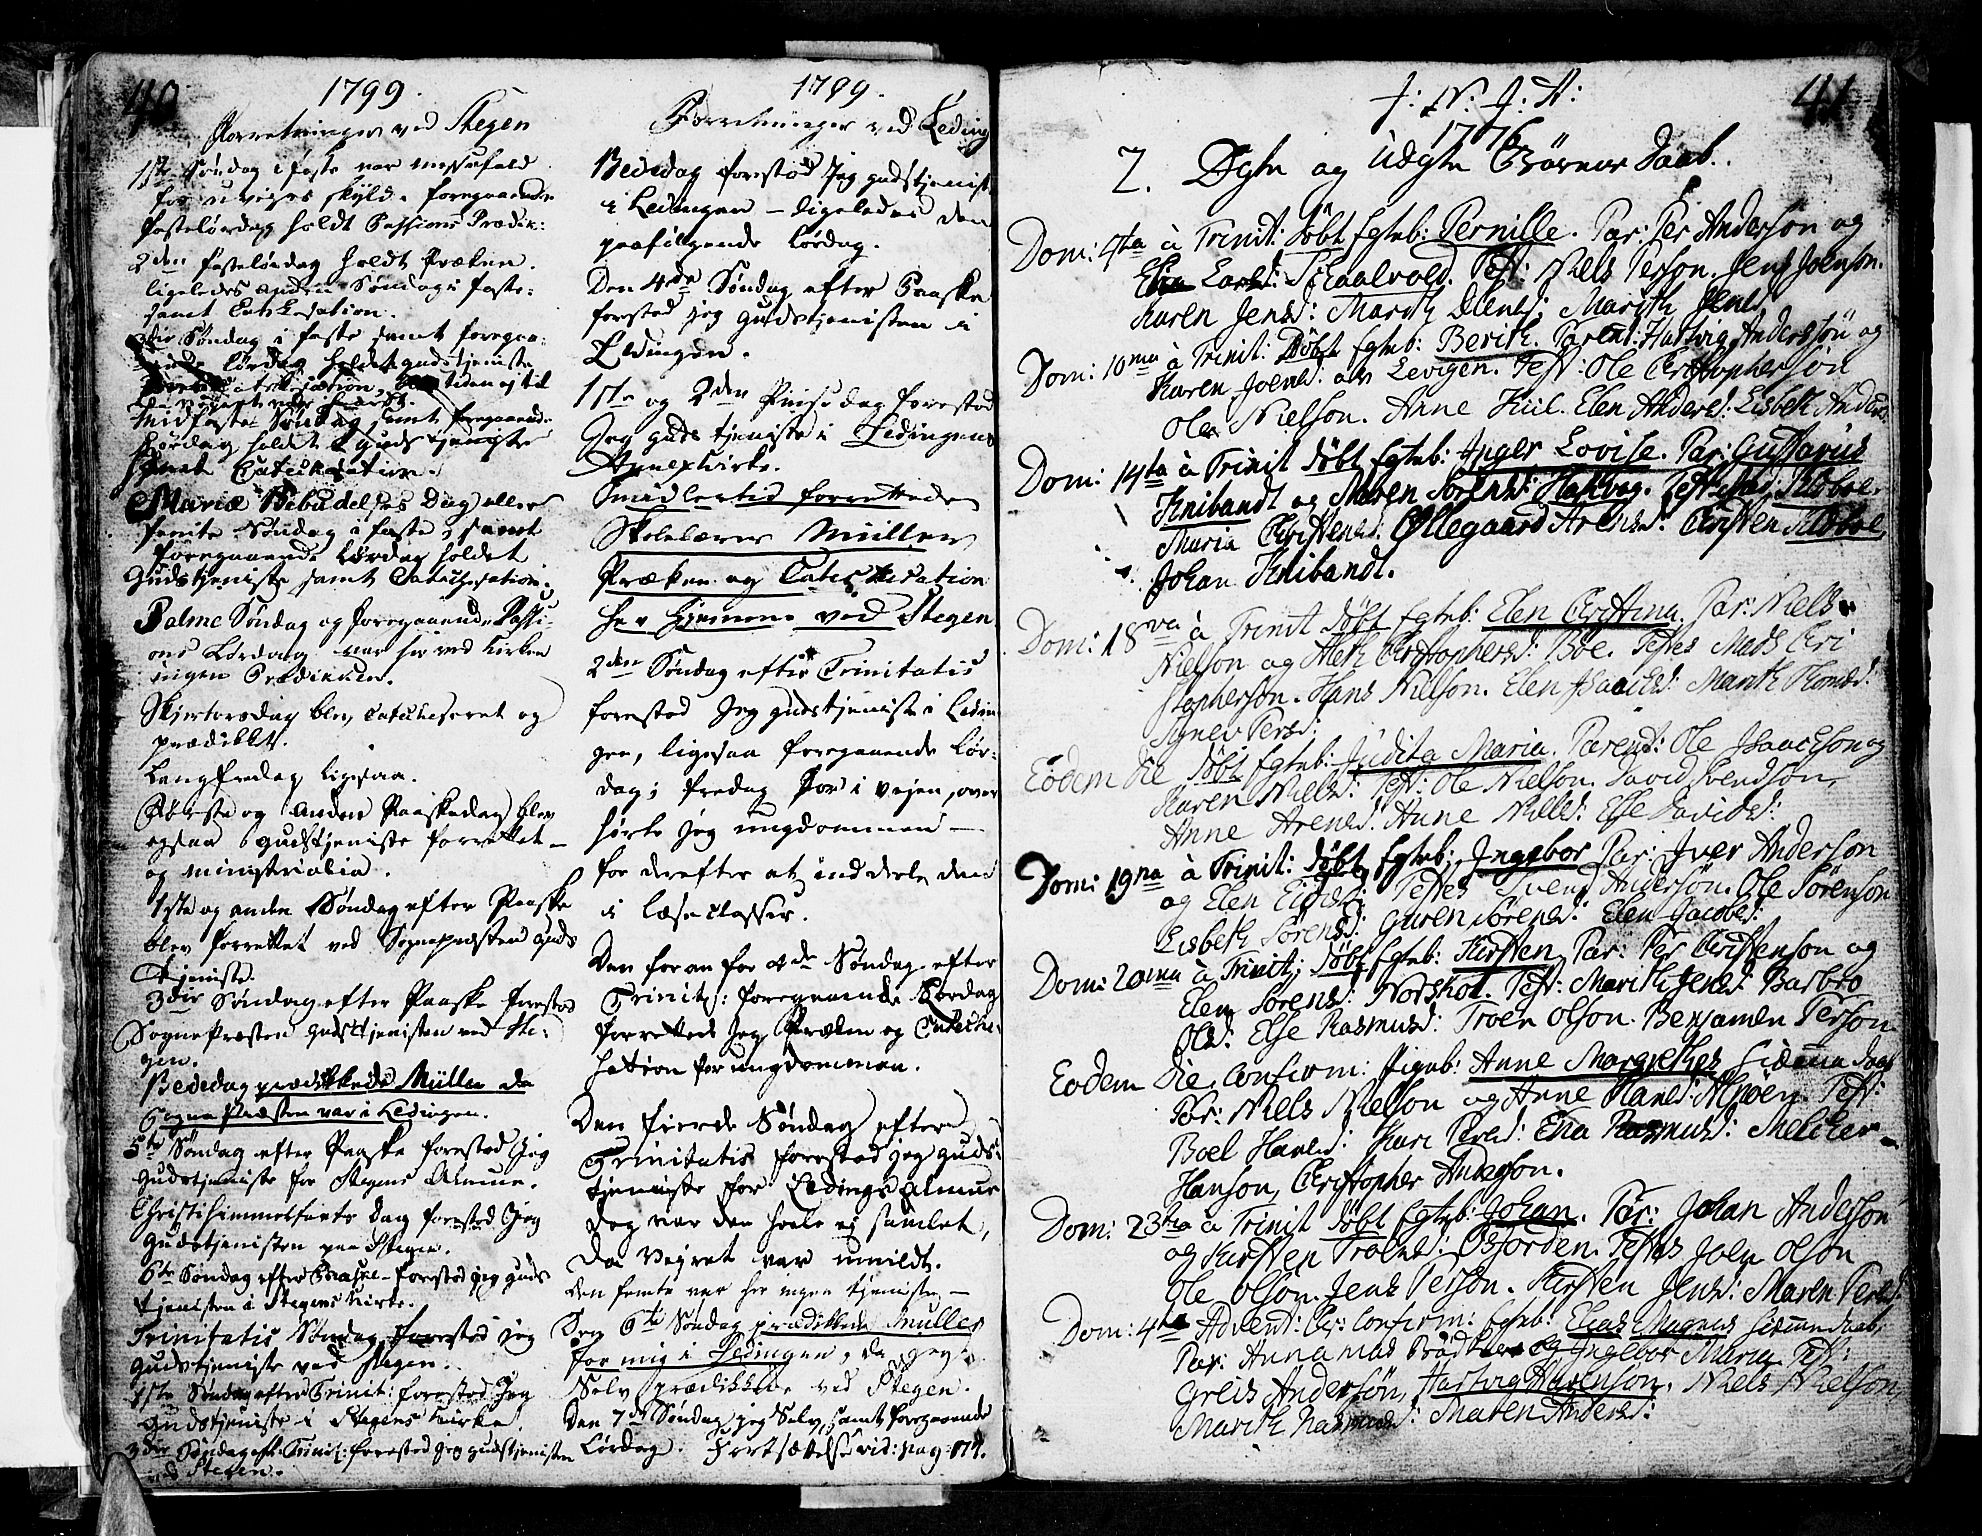 40.
1799.
Forretninger ved Stegen
1ste Søndag i faste var messefald
for uveirs skyld. foregaaende
fasteløverdag holdt Passions Prædik:
2den fasteløverdag holdt Præken.
ligeledes anden Søndag i faste.
samt Catekesation.
3die Søndag i faste samt foregaa-
ende lørdag holdet gudstjeniste
Midfaste Søndag samt foregaaende
Lørdag holdt gudstjeniste
samt Catechesation.
Mariæ Bebudelses Dag eller
femte Søndag i faste, samt
foregaaende Lørdag holdet
Gudstjeniste samt Catechesation.
Palme Søndag og foregaaende Passi-
ons Lørdag var her ved Kirken
ingen Prædiken.
Skjertorsdag blev catechiseret og
prædiket.
Langfredag ligesaa.
Første og Anden Paaskedag blev
ogsaa Gudstjeniste forrettet
og ministrialia.
1ste og anden Søndag efter Paaske
blev forrettet ved Sognepræsten guds
tjeniste.
3die Søndag efter Paaske forestod
Sognepræsten gudstjenisten ved Ste-
gen.
Bededag prædikkede Müller da
Sognepræsten var i Lødingen.
5te Søndag efter Paaske forestod Jeg
Gudstjeniste for Stegens Almue.
Christi himmelfarts Dag forestod Jeg
Gudstjenisten paa Stegen.
6te Søndag efter Paaske forestod jeg guds
tjenisten i Stegens Kirke.
Trinitatis Søndag forestod jeg
Gudstjeniste ved Stegen.
1ste Søndag efter Trinit: forestod Jeg
Gudstjeniste i Stegens Kirke
3die Søndag eft: Trinit: forestod Jeg gudstjenisten
ved Stegen.
1799.
Forretninger ved Leding
Bededag forestod Jeg gudstjenist
i Ledingen – ligeledes den
paafølgende lørdag.
Den 4de Søndag efter Paaske
forestod jeg gudstjenisten i
Ledingen.
1ste og 2den Pinsedag forestod
Jeg gudstjeniste i Ledingens
Annexkirke.
Imidlertid forrettede
Skolelærer Müller
Præken og Catechesation
her hjemme ved Stegen
2den Søndag efter Trinitatis
forestod Jeg gudstjeniste i Ledin
gen, ligesaa foregaaende lør-
dag; fredag for i vejen, over
hørte jeg ungdommen –
for derefter at inddele den
i læseclasser.
Den foran for 4de Søndag efter
Trinit: foregaaende Lørdag
forrettede Jeg Præken og Cateche-
sation for ungdommen.
Den fierde Søndag efter
Trinitatis forestod jeg guds-
tjeniste for Ledings Almue
dog var den heele ej samlet,
da Vejret var umildt.
Den femte var her ingen tjeniste –
Den 6te Søndag prædikkede Müller
for mig i Ledingen, da jeg
Selv prædikkede ved Stegen.
Den 7de Søndag jeg Selv, samt foregaaende
Lørdag. Fortsættelse vid: pag: 174.
41
J: N: J: A:
1776
2. Egte og Uægte Børnes Daab.
Dom: 4ta à Trinit: døbt Egteb: Pernille. Par: Per Anderson og
Elen Larsd: Skaalvold. Test: Niels Person. Jens Joenson.
Karen Jensd: Marith Olensd: Marith Jensd
Dom: 10ma à Trinit: Døbt Egteb: Berith. Parent: Hartvig Anderssøn og
Karen Joensd: av Levigen. Test: Ole Christophersøn
Ole Nielson. Anne Kiil. Elen Andersd: Lisbeth Andersd
Dom: 14ta à Trinit døbt Egteb: Inger Lovise. Par: Gustavus
Knibandt og Maren Sørensd: Haskvog. Test: Mad: Kleboe.
Maria Christensd: Øllegaard Arensd: Christen Kleboe
Johan Knibandt.
Dom: 18va à Trinit døbt Egteb: Elen Christina. Par: Niels
Nielson og Meth Christophersd: Boe. Testes Mads Chri
stopherson. Hans Nielson. Elen Isaachsd: Marith Thomæd:
Signev Persd:
Eodem die døbt Egteb: Judita Maria. Parent: Ole Isaachson og
Karen Nielsd: Test: Ole Nielson. David Svendson,
Anne Arensd: Anne Nielsd: Else Davidsd:
Dom: 19na à Trinit: døbt Egteb: Ingebor Par: Iver Anderson
og Elen Eigsd: Testes Svend Andersøn. Ole Sørenson
Lisbeth Sørensd: Guren Sørensd: Elen Jacobsd:
Dom: 20ma à Trinit: døbt Egteb: Kirsten Par: Per Christenson og
Elen Sørensd: Nordskot. Test: Marith Jensd: Barbro
Olsd: Else Rasmusd: Troen Olson. Benjamin Person
Eodem die Confirm: Pigeb: Anne Margrethes hiemme daab
Par: Niels Nielson og Anne Hansd: Alpøen. Test:
Boel Hansd: Kari Persd: Elia Rasmusd: Melcher
Hanson, Christopher Anderson.
Dom: 23tia à Trinit døbt Egteb: Johan. Par: Johan Anderson
og Kirsten Troensd: Osfiorden. Testes Joen Olson
Ole Olson. Jens Person. Kirsten Jensd: Maren Persd:
Dom: 4ta Advent: Chr: Confirm: Egteb: Elias Magnus hiemmedaab
Par: Hanna mas Brodkorb og Ingebor Maria. Test:
Greis Andersøn, Hartvig Hanson. Niels Nielson
Marith Rasmusd: Maren Andersd: